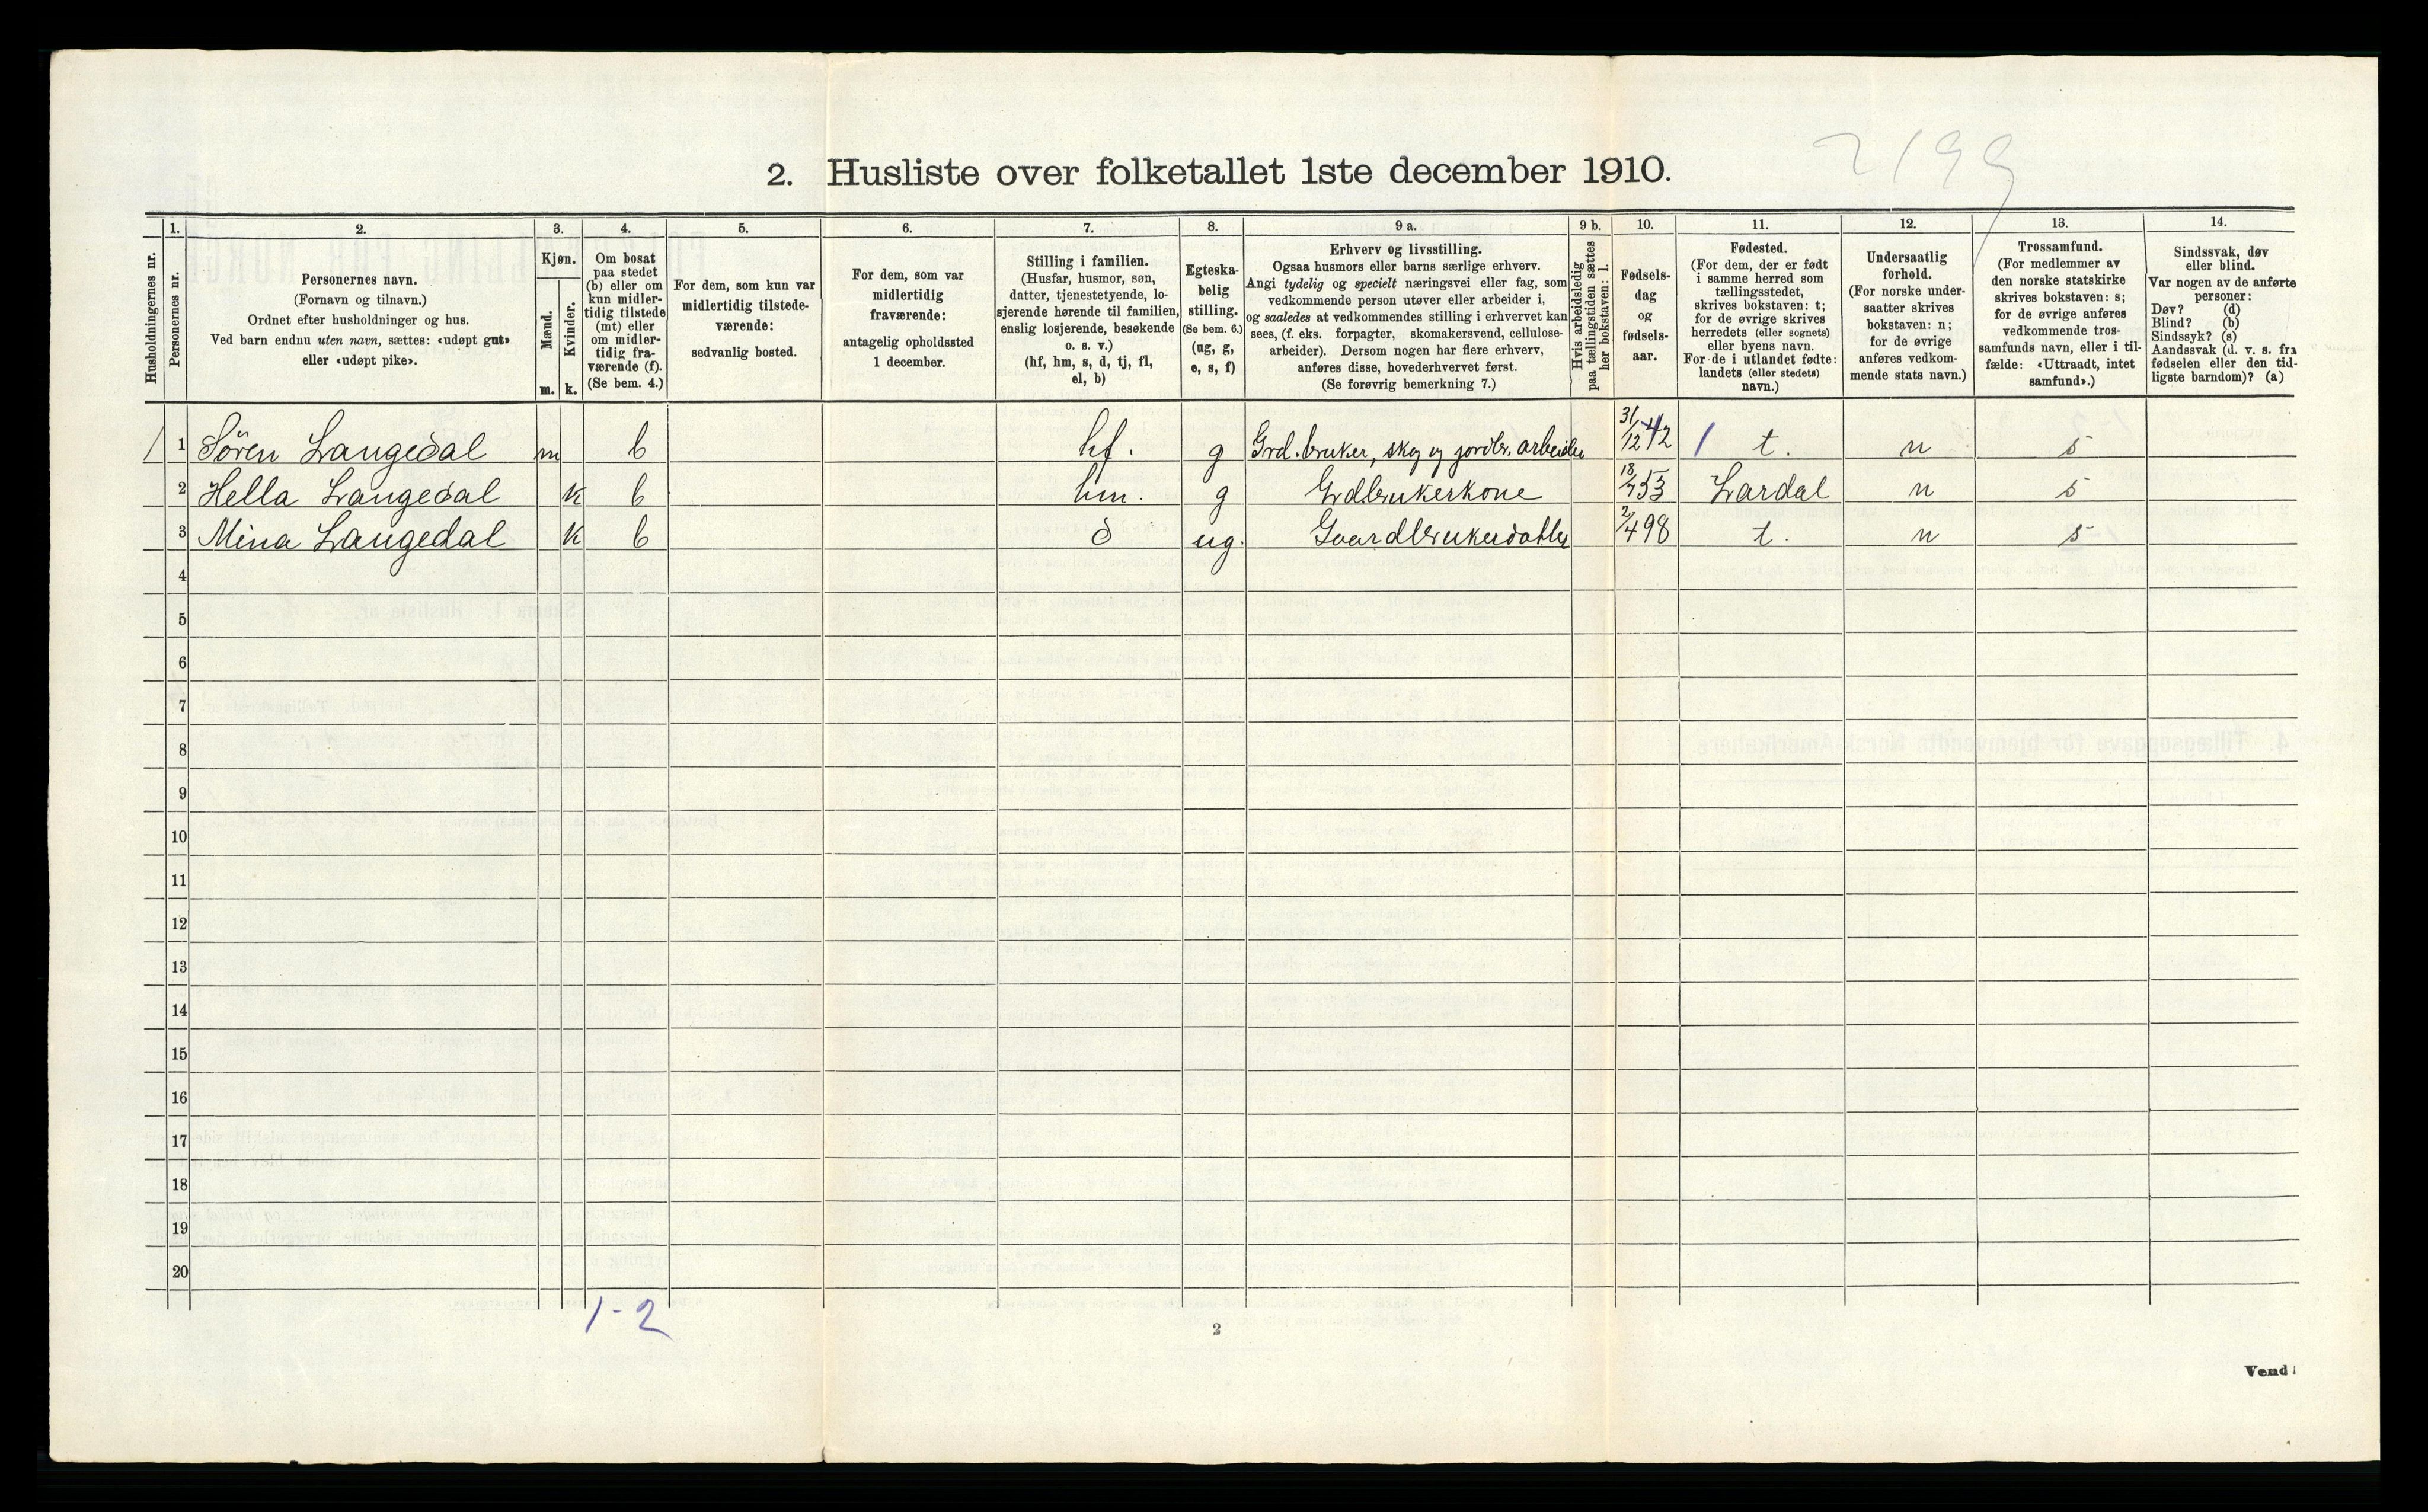 2199
2. Husliste over folketallet 1ste december 1910.
Husholdningernes nr.
1. Personernes nr.
2. Personernes navn.
(Fornavn og tilnavn.)
Ordnet efter husholdninger og hus.
Ved barn endnu uten navn, sættes: «udøpt gut»
eller «udøpt pike».
3. Kjøn.
Mænd. m.
Kvinder. k.
4. Om bosat
paa stedet
(b) eller om
kun midler-
tidig tilstede
(mt) eller
om midler-
tidig fra-
værende (f).
(Se bem. 4.)
5. For dem, som kun var
midlertidig tilstede-
værende:
sedvanlig bosted.
6. For dem, som var
midlertidig
fraværende:
antagelig opholdssted
1 december.
7. Stilling i familien.
(Husfar, husmor, søn,
datter, tjenestetyende, lo-
sjerende hørende til familien,
enslig losjerende, besøkende
o. s. v.)
(hf, hm, s, d, tj, fl,
el, b)
8. Egteska-
belig
stilling.
(Se bem. 6.)
(ug, g,
e, s, f)
9 a. Erhverv og livsstilling.
Ogsaa husmors eller barns særlige erhverv.
Angi tydelig og specielt næringsvei eller fag, som
vedkommende person utøver eller arbeider i,
og saaledes at vedkommendes stilling i erhvervet kan
sees, (f. eks. forpagter, skomakersvend, cellulose-
arbeider). Dersom nogen har flere erhverv,
anføres disse, hovederhvervet først.
(Se forøvrig bemerkning 7.)
9 b. Hvis arbeidsledig
paa tællingstiden sættes
her bokstaven: l.
10. Fødsels-
dag
og
fødsels-
aar.
11. Fødested.
(For dem, der er født
i samme herred som
tællingsstedet,
skrives bokstaven: t;
for de øvrige skrives
herredets (eller sognets)
eller byens navn.
For de i utlandet fødte:
landets (eller stedets)
navn.)
12. Undersaatlig
forhold.
(For norske under-
saatter skrives
bokstaven: n;
for de øvrige
anføres vedkom-
mende stats navn.)
13. Trossamfund.
(For medlemmer av
den norske statskirke
skrives bokstaven: s;
for de øvrige anføres
vedkommende tros-
samfunds navn, eller i til-
fælde: «Uttraadt, intet
samfund».)
14. Sindssvak, døv
eller blind.
Var nogen av de anførte
personer:
Døv? (d)
Blind? (b)
Sindssyk? (s)
Aandssvak (d. v. s. fra
fødselen eller den tid-
ligste barndom)? (a)
1 1 Søren Langedal m b hf. g Grd.bruker, skog og jordbr. arbeider 31/12 42 t. n s
2 Hella Langedal k b hm. g Grdbrukerkone 18/7 53 Lardal n s
3 Mina Langedal k b d ug. Gaardbrukerdatter 2/4 98 t. n s
4
5
6
7
8
9
10
11
12
13
14
15
16
17
18
19
20
1-2
2
Vend!